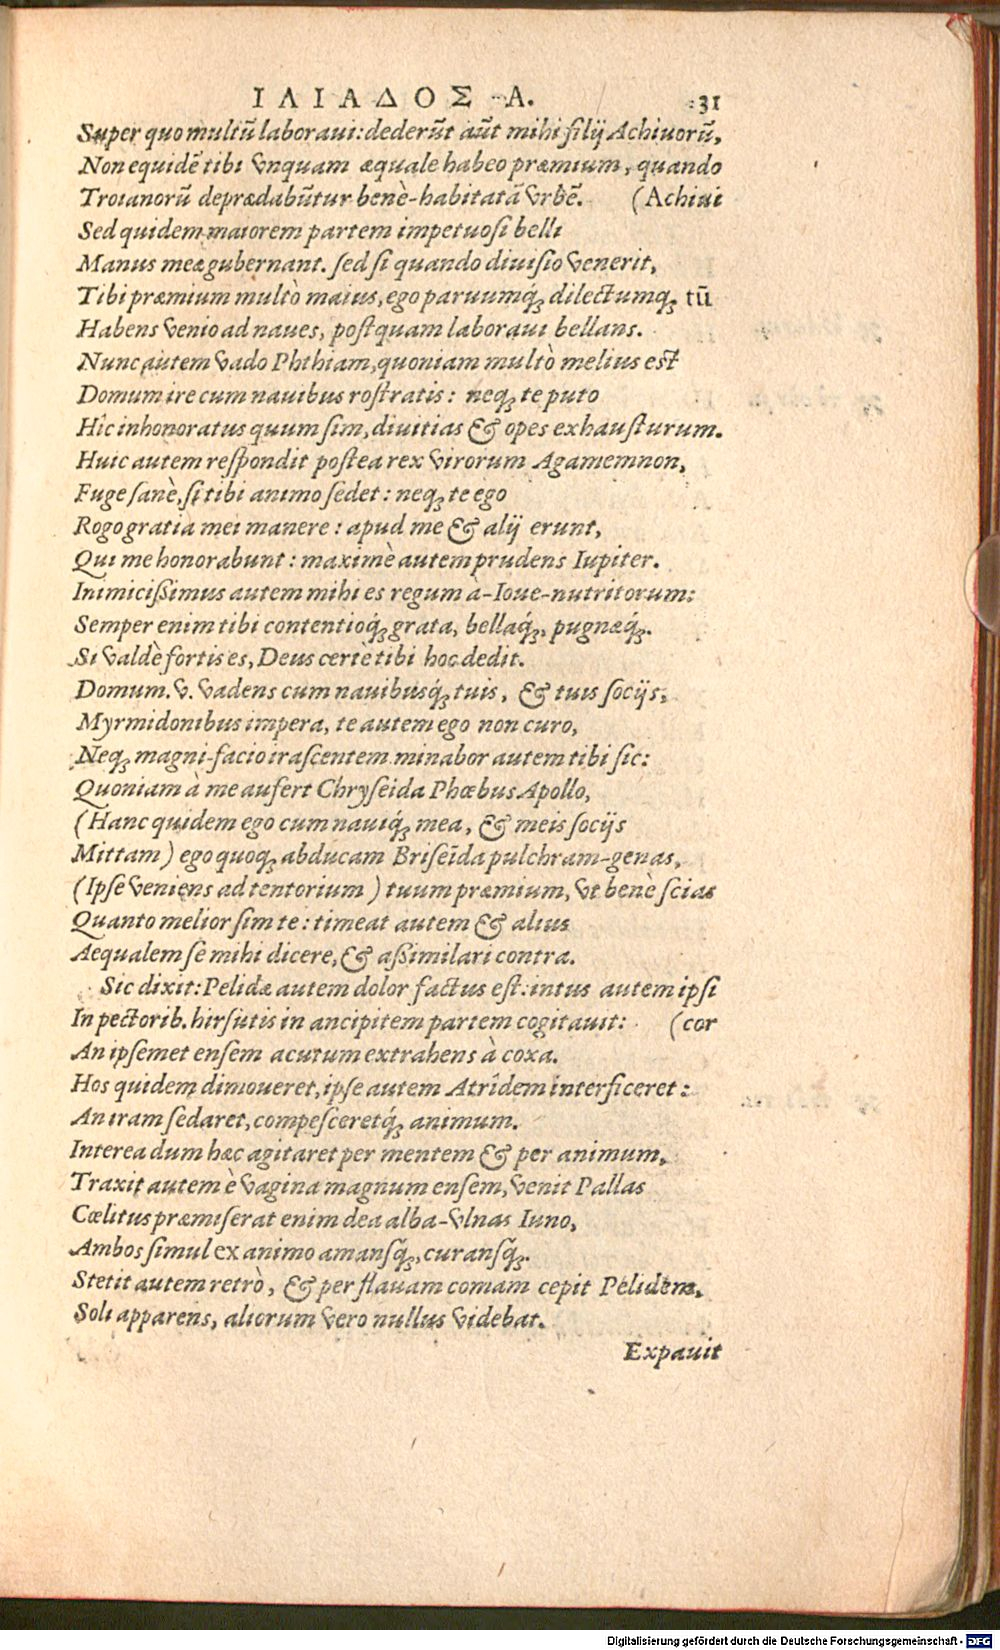 ΙΛΙΑΔΟΣ Α. 31
Super quo multū laboraui: dederūt aūt mihi filij Achiuorū,
Non equidē tibi vnquam æquale habeo præmium, quando
Troianorū deprædabūtur benè-habitatā vrbē. (Achiui
Sed quidem maiorem partem impetuosi belli
Manus meæ gubernant. sed si quando diuisio venerit,
Tibi præmium multò maius, ego paruumq́; dilectumq; tū
Habens venio ad naues, postquam laboraui bellans.
Nunc autem vado Phthiam, quoniam multò melius est
Domum ire cum nauibus rostratis: neq; te puto
Hîc inhonoratus quum sim, diuitias & opes exhausturum.
Huic autem respondit postea rex virorum Agamemnon,
Fuge sanè, si tibi animo sedet: neq; te ego
Rogo gratia mei manere: apud me & alij erunt,
Qui me honorabunt: maximè autem prudens Iupiter.
Inimicissimus autem mihi es regum à-Ioue-nutritorum:
Semper enim tibi contentioq́; grata, bellaq́;, pugnæq́;.
Si valdè fortis es, Deus certe tibi hoc dedit.
Domum. v. vadens cum nauibusq́; tuis, & tuis socijs,
Myrmidonibus impera, te autem ego non curo,
Neq; magni-facio irascentem minabor autem tibi sic:
Quoniam à me aufert Chryseida Phœbus Apollo,
(Hanc quidem ego cum nauiq́; mea, & meis socijs
Mittam) ego quoq; abducam Briseïda pulchram-genas,
(Ipse veniens ad tentorium) tuum præmium, vt benè scias
Quanto melior sim te: timeat autem & alius
Aequalem se mihi dicere, & assimilari contra.
Sic dixit: Pelidæ autem dolor factus est: intus autem ipsi
In pectorib. hirsutis in ancipitem partem cogitauit: (cor
An ipsemet ensem acutum extrahens à coxa.
Hos quidem dimoueret, ipse autem Atrîdem interficeret:
An iram sedaret, compesceretq́; animum.
Interea dum hæc agitaret per mentem & per animum,
Traxit autem è vagina magnum ensem, venit Pallas
Cœlitus præmiserat enim dea alba-vlnas Iuno,
Ambos simul ex animo amansq́;, curansq́;.
Stetit autem retrò, & per flauam comam cepit Pelidem,
Soli apparens, aliorum vero nullus videbat.
Expauit
Digitalisierung gefördert durch die Deutsche Forschungsgemeinschaft - DFG